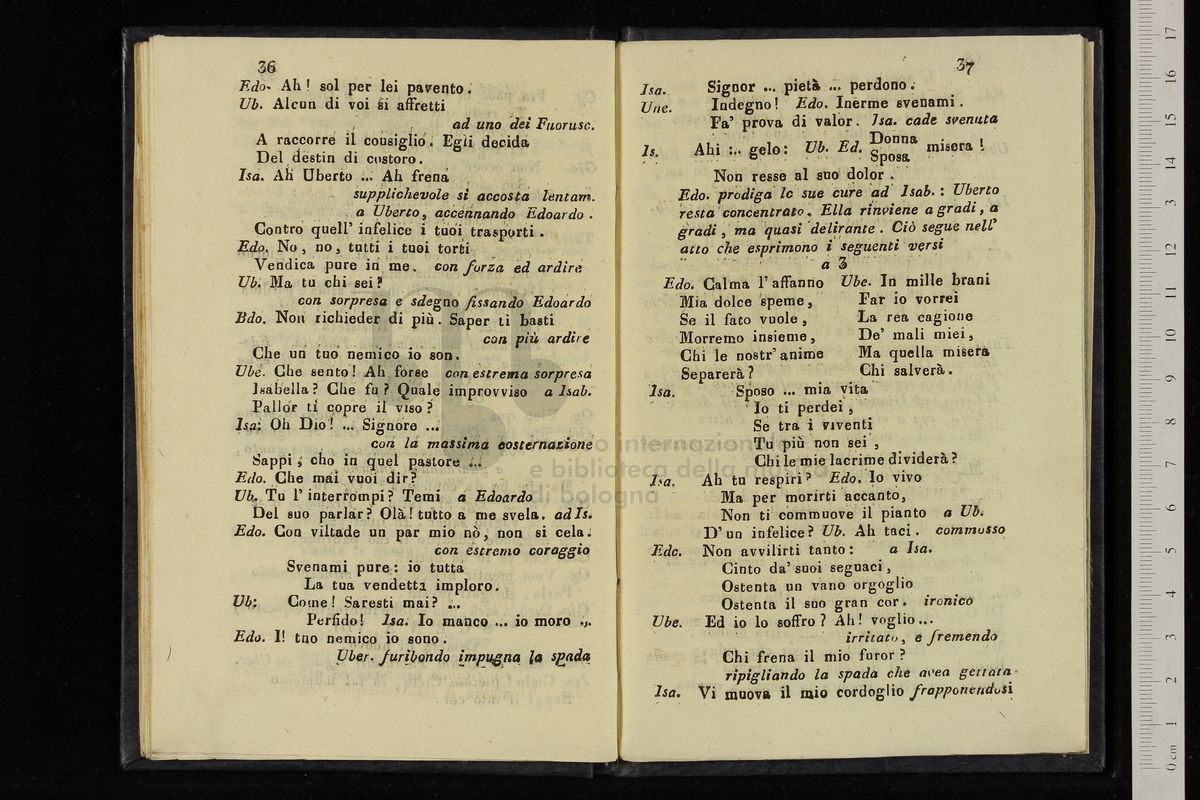 36
Edo- Ah! sol per lei pavento.
Ub. Alcun di voi si affretti
ad uno dei Fuorusc.
A raccorre il consiglio. Egli decida
Del destin di costoro.
Isa. Ah Uberto ... Ah frena
supplichevole si accosta lentam.
a Uberto, accennando Edoardo.
Contro quell' infelice i tuoi trasporti.
Edo. No, no, tutti i tuoi torti
Vendica pure in me. con forza ed ardire
Ub. Ma tu chi sei?
con sorpresa e sdegno fissando Edoardo
Bdo. Non richieder di più. Saper ti basti
con più ardire
Che un tuo nemico io son.
Ube. Che sento! Ah forse con estrema sorpresa
Isabella? Che fu? Quale improvviso a Isab.
Pallor ti copre il viso?
Isa: Oh Dio! ... Signore ...
con la massima costernazione
Sappi, cho in quel pastore ...
Edo. Che mai vuoi dir?
Ub. Tu l'interrompi? Temi a Edoardo
Del suo parlar? Olà! tutto a me svela. ad Is.
Edo. Con viltade un par mio nò, non si cela.
con estremo coraggio
Svenami pure: io tutta
La tua vendetta imploro.
Ub: Come! Saresti mai? ...
Perfido! Isa. Io manco ... io moro ...
Edo. Il tuo nemico io sono.
Uber. furibondo impugna la spada
37
Isa. Signor ... pietà ... perdono.
Une. Indegno! Edo. Inerme svenami.
Fa' prova di valor. Isa. cade svenuta
Is. Ahi ... gelo: Ub. Ed. Donna Sposa misera!
Non resse al suo dolor.
Edo. prodiga le sue cure ad Isab.: Uberto
resta concentrato. Ella rinviene a gradi, a
gradi, ma quasi delirante. Ciò segue nell'
atto che esprimono i seguenti versi
a 3
Edo. Calma l'affanno
Mia dolce speme,
Se il fato vuole,
Morremo insieme,
Chi le nostr'anime
Separerà?
Ube. In mille brani
Far io vorrei
La rea cagione
De' mali miei,
Ma quella misera
Chi salverà.
Isa. Sposo ... mia vita
Io ti perdei,
Se tra i viventi
Tu più non sei,
Chi le mie lacrime dividerà?
Isa. Ah tu respiri? Edo. Io vivo
Ma per morirti accanto,
Non ti commuove il pianto a Ub.
D'un infelice? Ub. Ah taci. commosso
Edc. Non avvilirti tanto: a Isa.
Cinto da' suoi seguaci,
Ostenta un vano orgoglio
Ostenta il suo gran cor. ironico
Ube. Ed io lo soffro? Ah! voglio...
irritato, e fremendo
Chi frena il mio furor?
ripigliando la spada che avea gettata
Isa. Vi muova il mio cordoglio frapponendosi
museo internazionale
e biblioteca della musica
di bologna
0 cm 1 2 3 4 5 6 7 8 9 10 11 12 13 14 15 16 17